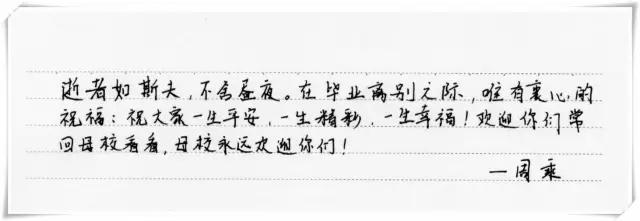 逝者如斯夫,不舍昼夜。在毕业离别之际,唯有衷心的
祝福:祝大家一生平安,一生精彩,一生幸福!欢迎你们常
回母校看看,母校永远欢迎你们!
—周乘